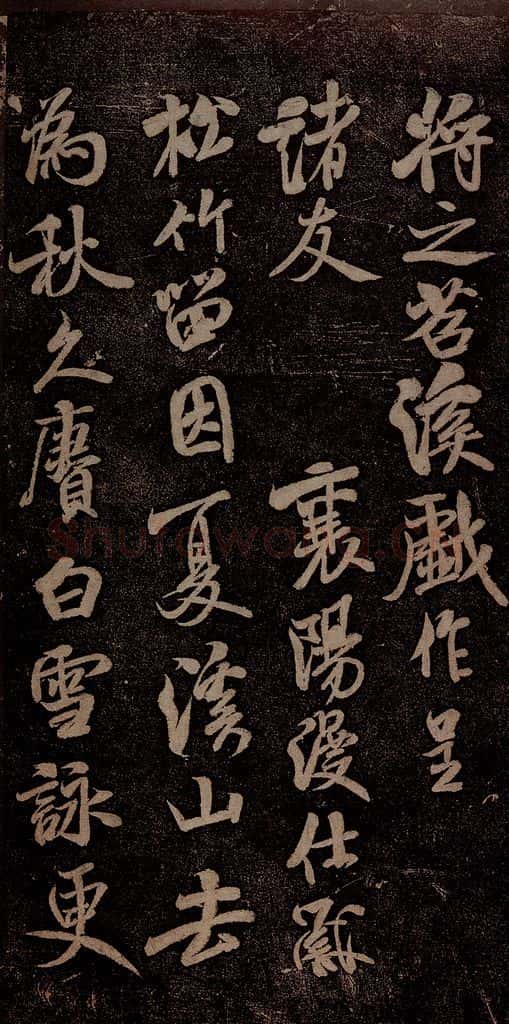 将之苕溪戲作呈
諸友　襄陽漫仕黻
松竹留因夏溪山去
為秋久賡白雪詠更